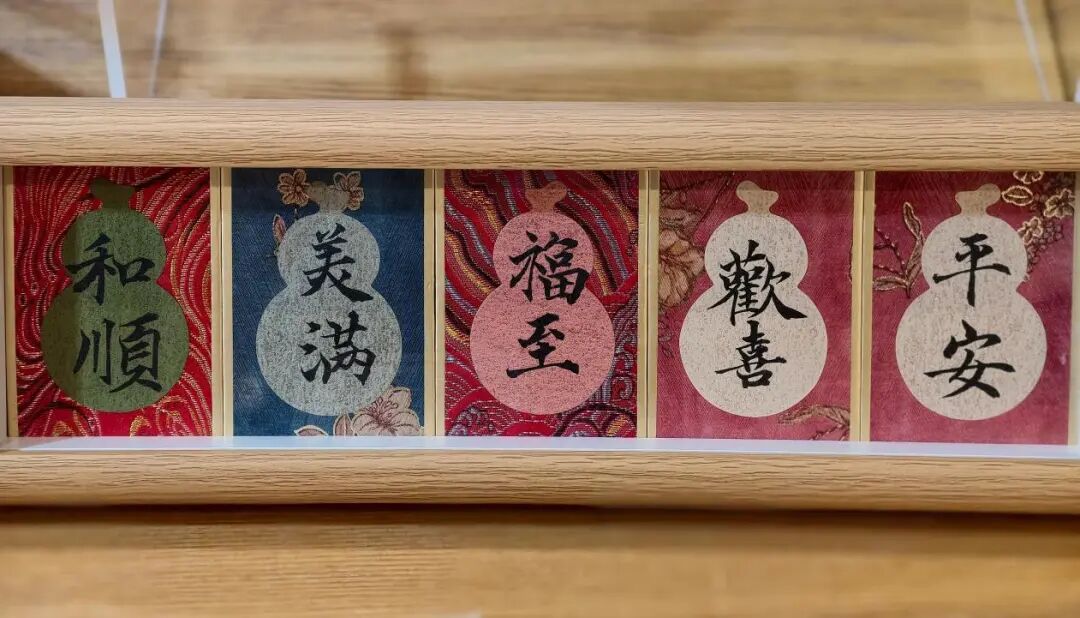 和順
美满
福至
歡喜
平安